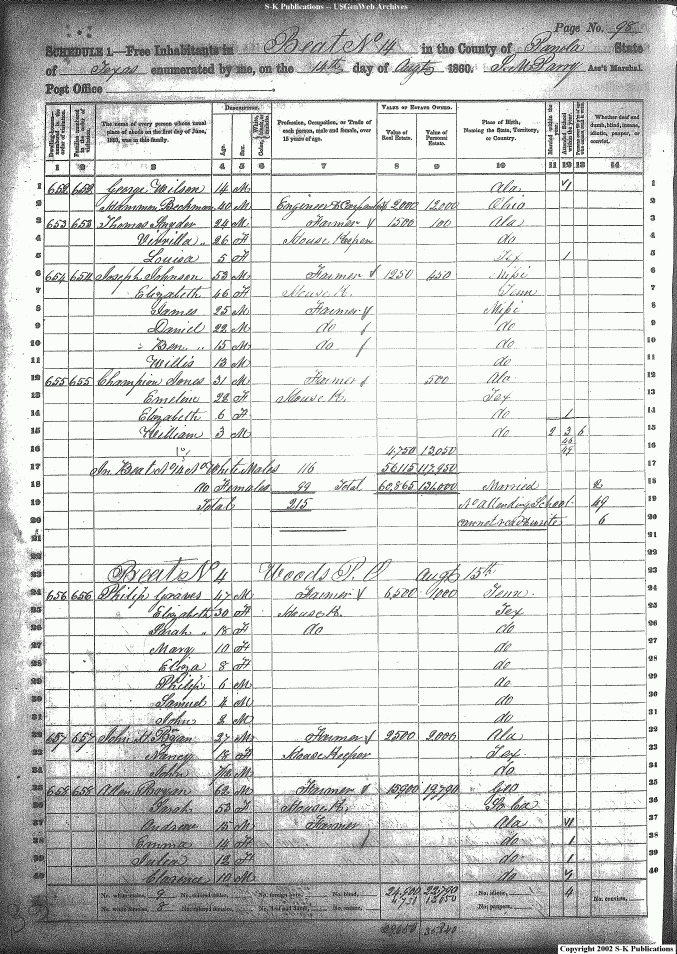 S-K Publications -- USGenWeb Archives
Page No. 98
SCHEDULE 1.—Free Inhabitants in Beat No 14 in the County of Panola State
of Texas enumerated by me, on the 14th day of Augt 1860. Ass't Marshal.
Post Office
Dwelling-houses— numbered in the order of visitation.
Families numbered in the order of visitation.
The name of every person whose usual place of abode on the first day of June, 1860, was in this family.
DESCRIPTION.
Age.
Sex.
Profession, Occupation, or Trade of each person, male and female, over 15 years of age.
VALUE OF ESTATE OWNED.
Value of Real Estate.
Value of Personal Estate.
Place of Birth, Naming the State, Territory, or Country.
Married within the year.
Attended School within the year.
Whether deaf and dumb, blind, insane, idiotic, pauper, or convict.
1 2 3 4 5 6 7 8 9 10 11 12 13 14
1 652 652 George Wilson 14 M Ala 1 1
2 40 M Engineer & 2000 12000 Ohio 2
3 653 653 Thomas Snyder 24 M Farmer 1500 100 Ala 3
4 " 26 F House Keeper do 4
5 Louisa 5 F Tex 1 5
6 654 654 Joseph Johnson 53 M Farmer 1250 450 Mipi 6
7 Elizabeth 46 F House K. Tenn 7
8 James 25 M Farmer Mipi 8
9 Daniel 22 M do do 9
10 Ben " 15 M do do 10
11 Willis 13 M do 11
12 655 655 Champion Jones 31 M Farmer 500 Ala 12
13 Emelene 22 F House K. Tex 13
14 Elizabeth 6 F do 1 14
15 William 3 M do 2 3 6 15
16 4,750 13,050 46 49 16
17 In Beat No 14 No White Males 116 56115 117,950 17
18 do Females 99 Total 60,865 131,000 Married 2 18
19 Total 215 No Attending School 49 19
20 cannot read & write 6 20
21 21
22 22
23 Beat No 4 Woods P.O Augt 15th 23
24 656 656 Philip Graves 47 M Farmer 6,500 9000 Tenn. 24
25 Elizabeth 30 F House K. Tex 25
26 Sarah " 18 F do do 26
27 Mary 10 F do 27
28 Eliza 8 F do 28
29 Philip 6 M do 29
30 Samuel 4 M do 30
31 John 2 M do 31
32 657 657 John 27 M Farmer 2500 2000 Ala 32
33 Nancy 18 F House Keeper Tex 33
34 John M do 34
35 658 658 Allen 62 M Farmer 15900 12,790 Geo 35
36 Sarah 53 F House K. So Ca 36
37 Andrew 15 M Farmer Ala 1 37
38 Emma 14 F do 1 38
39 Julia 12 F do 1 39
40 Clarence 10 M do 1 40
No. white males, 9 No. colored males, No. foreign born, No. blind, 24,900 22,790 No. idiotic, 4 No. convicts,
No. white females, 8 No. colored females, No. deaf and dumb, No. insane, No. paupers,
Copyright 2002 S-K Publications